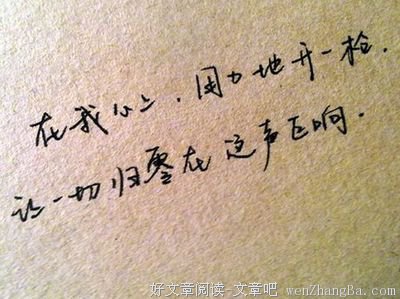 在我心上,用力地开一枪.
让一切归零在这声巨响.
好文章阅读-文章吧 wenZhangBa.com